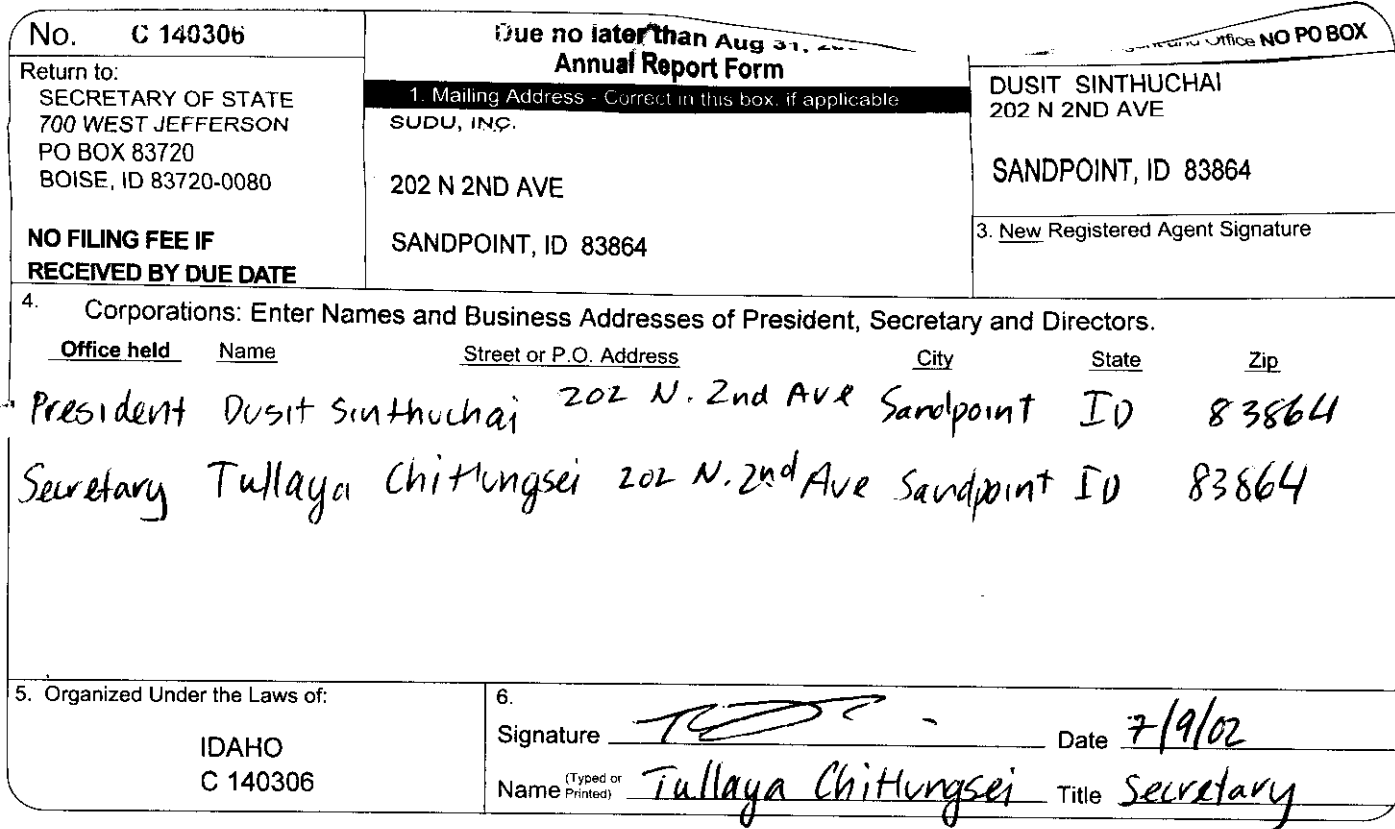 No. C 140306
Due no later than Aug 31,
Annual Report Form
Office NO PO BOX
Return to:
SECRETARY OF STATE
700 WEST JEFFERSON
PO BOX 83720
BOISE, ID 83720-0080
NO FILING FEE IF
RECEIVED BY DUE DATE
1. Mailing Address - Correct in this box, if applicable
SUDU, INC.
202 N 2ND AVE
SANDPOINT, ID 83864
DUSIT SINTHUCHAI
202 N 2ND AVE
SANDPOINT, ID 83864
3. New Registered Agent Signature
4. Corporations: Enter Names and Business Addresses of President, Secretary and Directors.
Office held Name Street or P.O. Address City State Zip
President Dusit Sinthuchai 202 N. 2nd Ave Sandpoint ID 83864
Secretary Tullaya Chittungsei 202 N. 2nd Ave Sandpoint ID 83864
5. Organized Under the Laws of:
IDAHO
C 140306
6.
Signature Date 7/9/02
Name (Typed or Printed) Tullaya Chittungsei Title Secretary